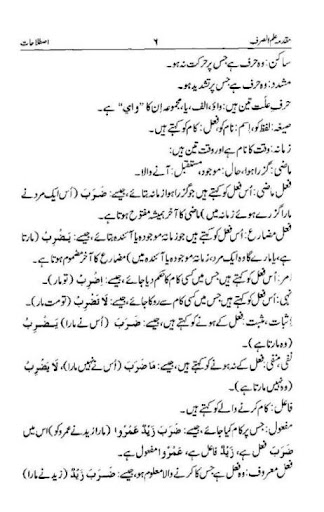 مقدمہ علم الصرف ۶ اصطلاحات
ساکن: وہ حرف ہے جس پر حرکت نہ ہو۔
مشدد: وہ حرف ہے جس پر تشدید ہو۔
حرفِ علّت تین ہیں: واؤ، الف، یا، مجموعہ اِن کا ”وای“ ہے۔
صیغہ: لفظ کو، اِسم: نام کو، فعل: کام کو کہتے ہیں۔
زمانہ: وقت کا نام ہے اور وقت تین ہیں:
ماضی: گزرا ہوا، حال: موجود، مستقبل: آنے والا۔
فعل ماضی: اُس فعل کو کہتے ہیں جو گزرا ہوا زمانہ بتائے، جیسے: ضَرَبَ (اُس ایک مرد نے
مارا گزرے ہوئے زمانہ میں) ماضی کا آخر ہمیشہ مفتوح ہوتا ہے۔
فعل مضارع: اُس فعل کو کہتے ہیں جو زمانۂ موجودہ یا آئندہ بتائے، جیسے: یَضْرِبُ (مارتا
ہے، یا مارے گا وہ ایک مرد، زمانہ موجودہ یا آئندہ میں) مضارع کا آخر مضموم ہوتا ہے۔
امر: اُس فعل کو کہتے ہیں جس میں کسی کام کا حکم دیا جائے، جیسے: اِضْرِبْ (تو مار)۔
نہی: اُس فعل کو کہتے ہیں جس میں کسی کام سے روکا جائے، جیسے: لَا تَضْرِبْ (تو مت مار)۔
اثبات، مثبت: فعل کے ہونے کو کہتے ہیں، جیسے: ضَرَبَ (اُس نے مارا) یَضْرِبُ
(وہ مارتا ہے)۔
نفی، منفی: فعل کے نہ ہونے کو کہتے ہیں، جیسے: مَا ضَرَبَ (اُس نے نہیں مارا)، لَا یَضْرِبُ
(وہ نہیں مارتا ہے)۔
فاعل: کام کرنے والے کو کہتے ہیں۔
مفعول: جس پر کام کیا جائے، جیسے: ضَرَبَ زَیْدٌ عَمْرًوا (مارا زید نے عمرو کو) اس میں
ضَرَبَ فعل ہے، زَیْدٌ فاعل ہے، عَمْرًوا مفعول ہے۔
فعل معروف: وہ فعل ہے جس کا کرنے والا معلوم ہو، جیسے: ضَرَبَ زَیْدٌ (زید نے مارا)